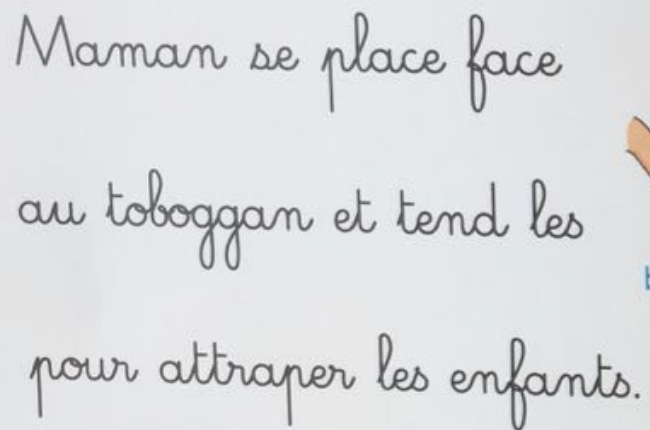 Maman se place face
au toboggan et tend les
pour attraper les enfants.